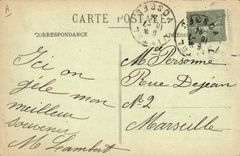 CARTE POSTALE
CORRESPONDANCE
Ici on
gèle mon
meilleur
souvenir
M Lambert
M Personne
Rue Dejean
Nº2
Marseille